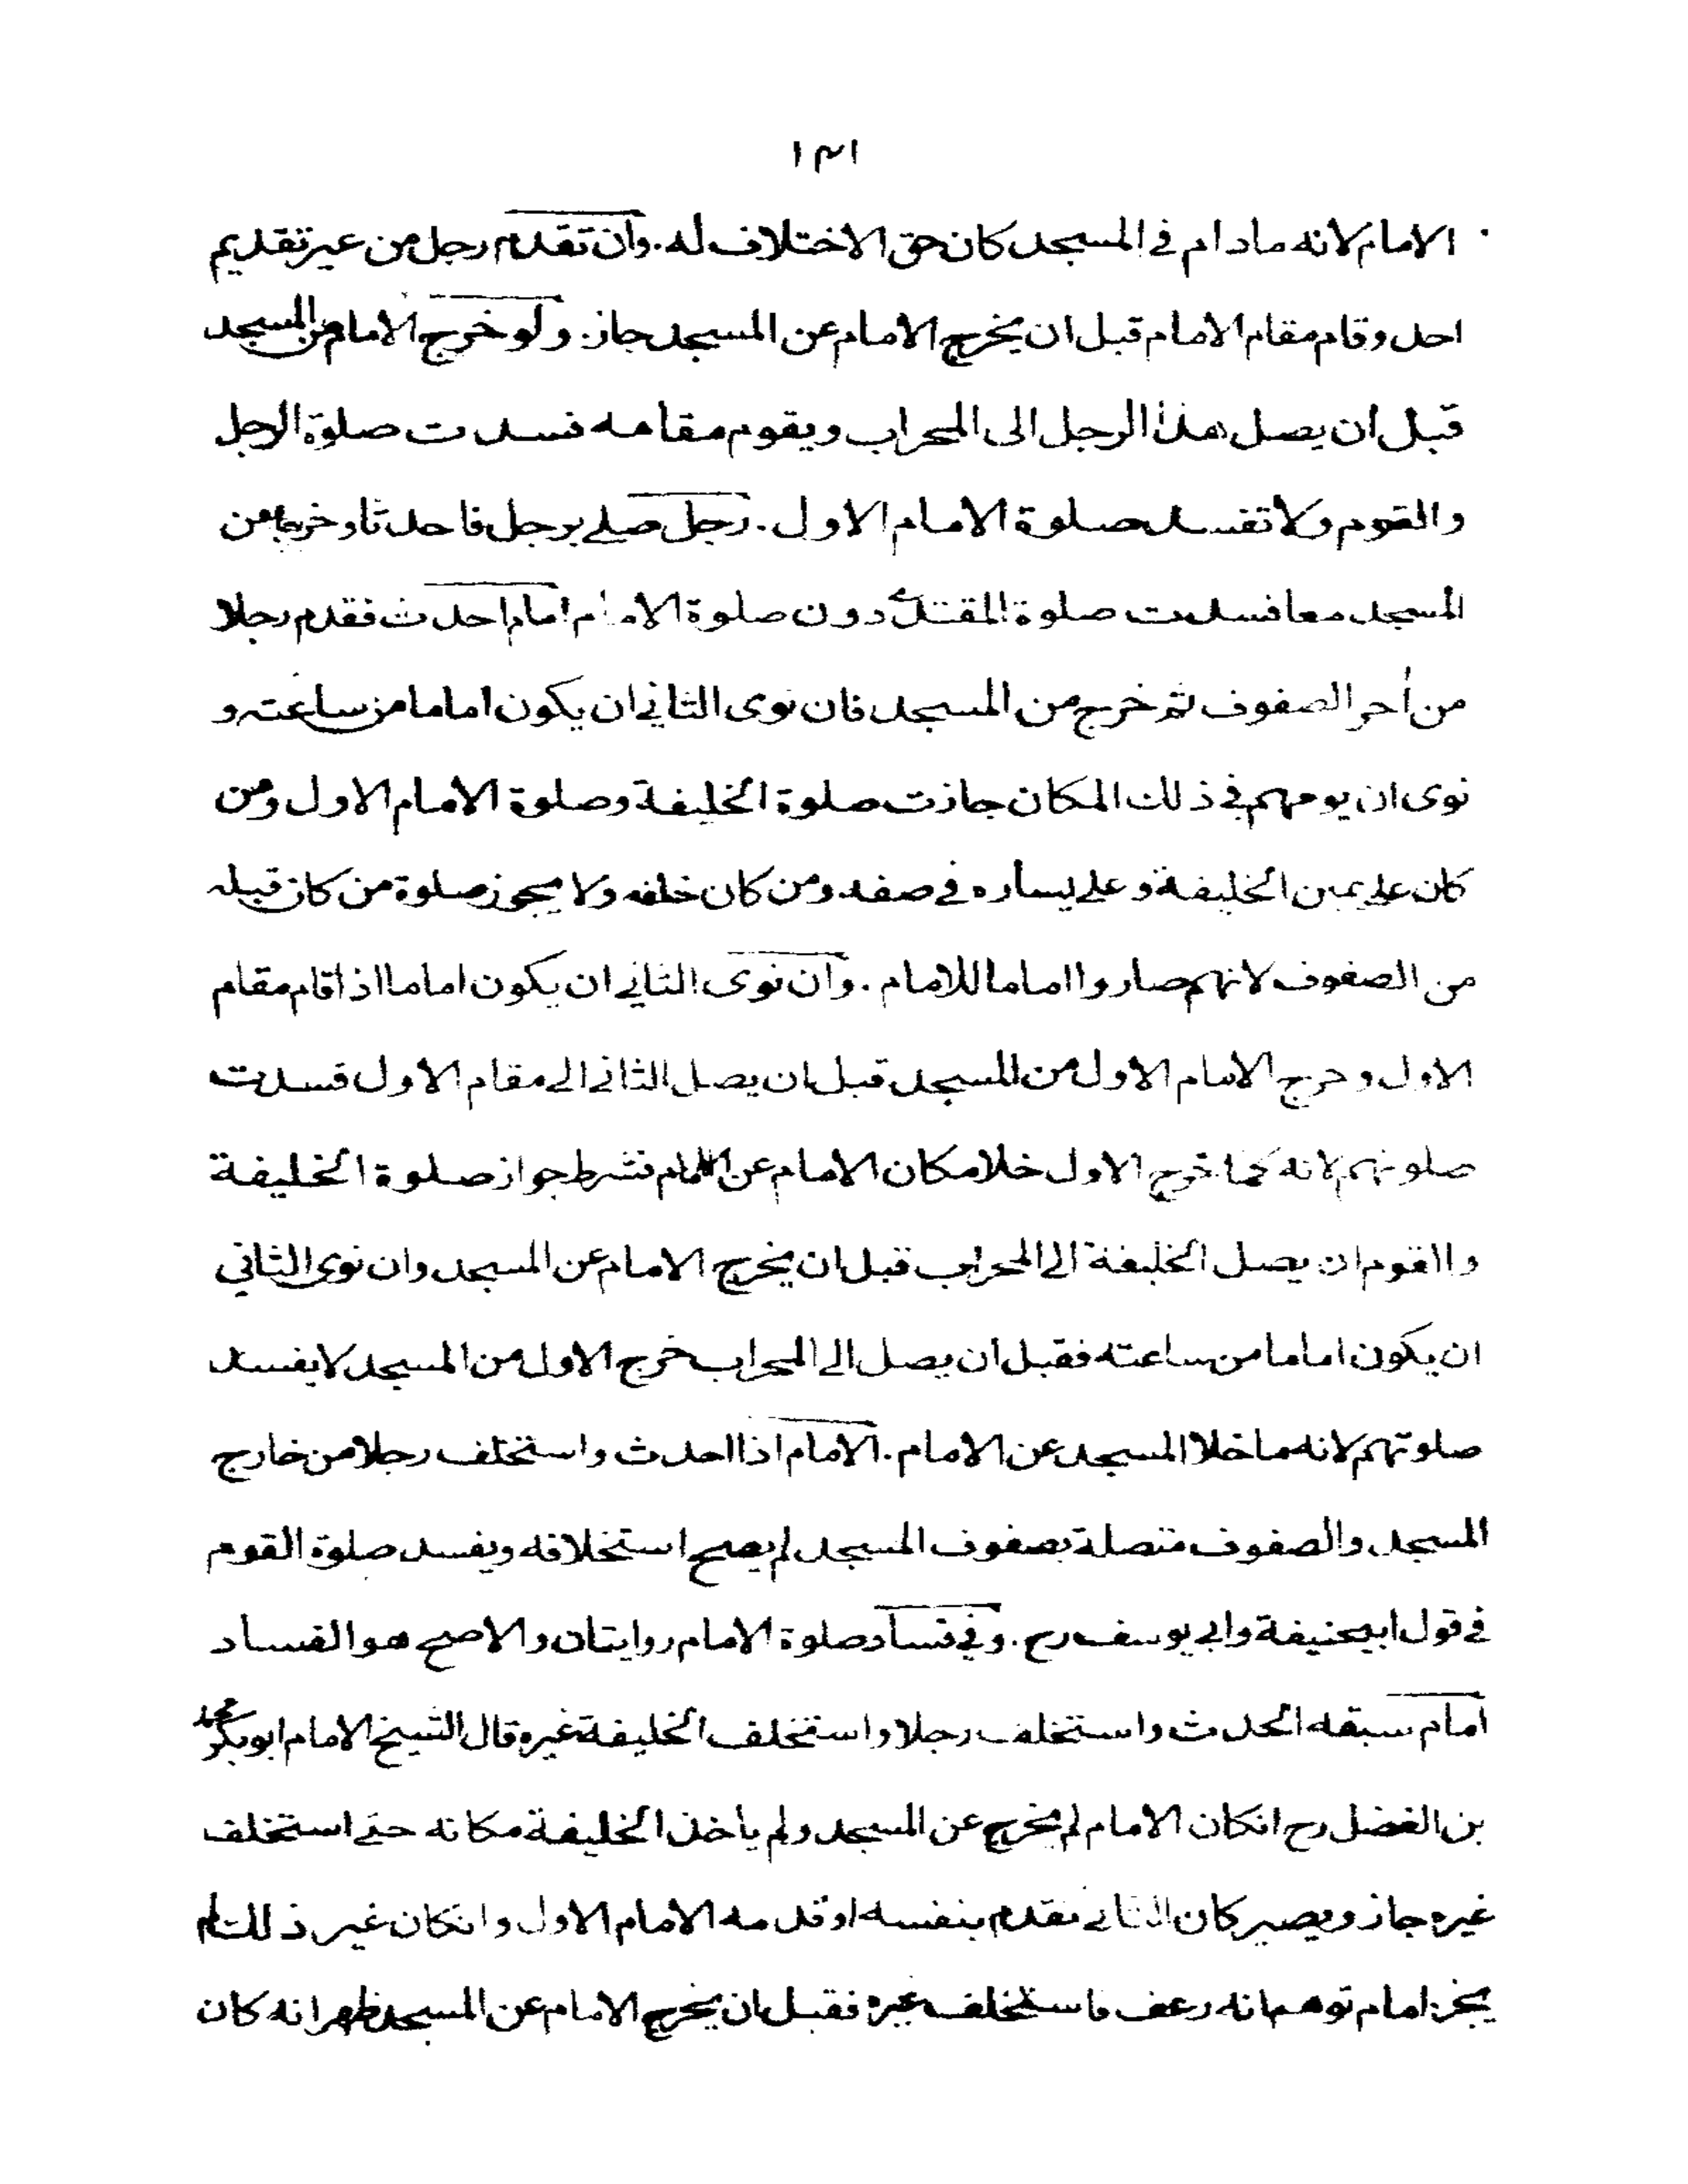 ١٣١
الامام لانه مادام في المسجد كان حق الاختلاف له. وان تقدم رجل من عير تقديم
احد وقام مقام الامام قبل ان يخرج الامام عن المسجد جاز. ولو خرج الامام من المسجد
قبل ان يصل هذا الرجل الى المحراب ويقوم مقامه فسدت صلوة الرجل
والقوم ولا تفسد صلوة الامام الاول. رجل صلے برجل فاحدثا وخرجا من
المسجد معا فسدت صلوة المقتدے دون صلوة الامام امام احدث فقدم رجلا
من أخر الصفوف ثم خرج من المسجد فان نوى الثاني ان يكون اماما من ساعته و
نوى ان يومهم في ذلك المكان جازت صلوة الخليفة وصلوة الامام الاول ومن
كان علے يمين الخليفة وعلے يساره في صفه ومن كان خلفه ولا يجوز صلوة من كان قبله
من الصفوف لانهم صاروا اماما للامام. وان نوى الثاني ان يكون اماما اذا قام مقام
الاول وخرج الامام الاول من المسجد قبل ان يصل الثاني الے مقام الاول فسدت
صلوتهم لانه كما خرج الاول خلا مكان الامام عن الامام فشرط جواز صلوة الخليفة
والقوم ان يصل الخليفة الے المحراب قبل ان يخرج الامام عن المسجد وان نوى الثاني
ان يكون اماما من ساعته فقبل ان يصل الے المحراب خرج الاول من المسجد لا يفسد
صلوتهم لانه ما خلا المسجد عن الامام. الامام اذا احدث واستخلف رجلا من خارج
المسجد والصفوف متصلة بصفوف المسجد لم يصح استخلافه ويفسد صلوة القوم
في قول ابيحنيفة وابي يوسف رح. وفي فساد صلوة الامام روايتان والاصح هو الفساد
امام سبقه الحدث واستخلف رجلا واستخلف الخليفة غيره قال الشيخ الامام ابوبكر محمد
بن الفضل رح انكان الامام لم يخرج عن المسجد ولم ياخذ الخليفة مكانه حتے استخلف
غيره جاز ويصير كان الثاني تقدم بنفسه او قدمه الامام الاول وانكان غير ذلك لم
يجز. امام توهم انه رعف فاستخلف غيره فقبل ان يخرج الامام عن المسجد ظهر انه كان